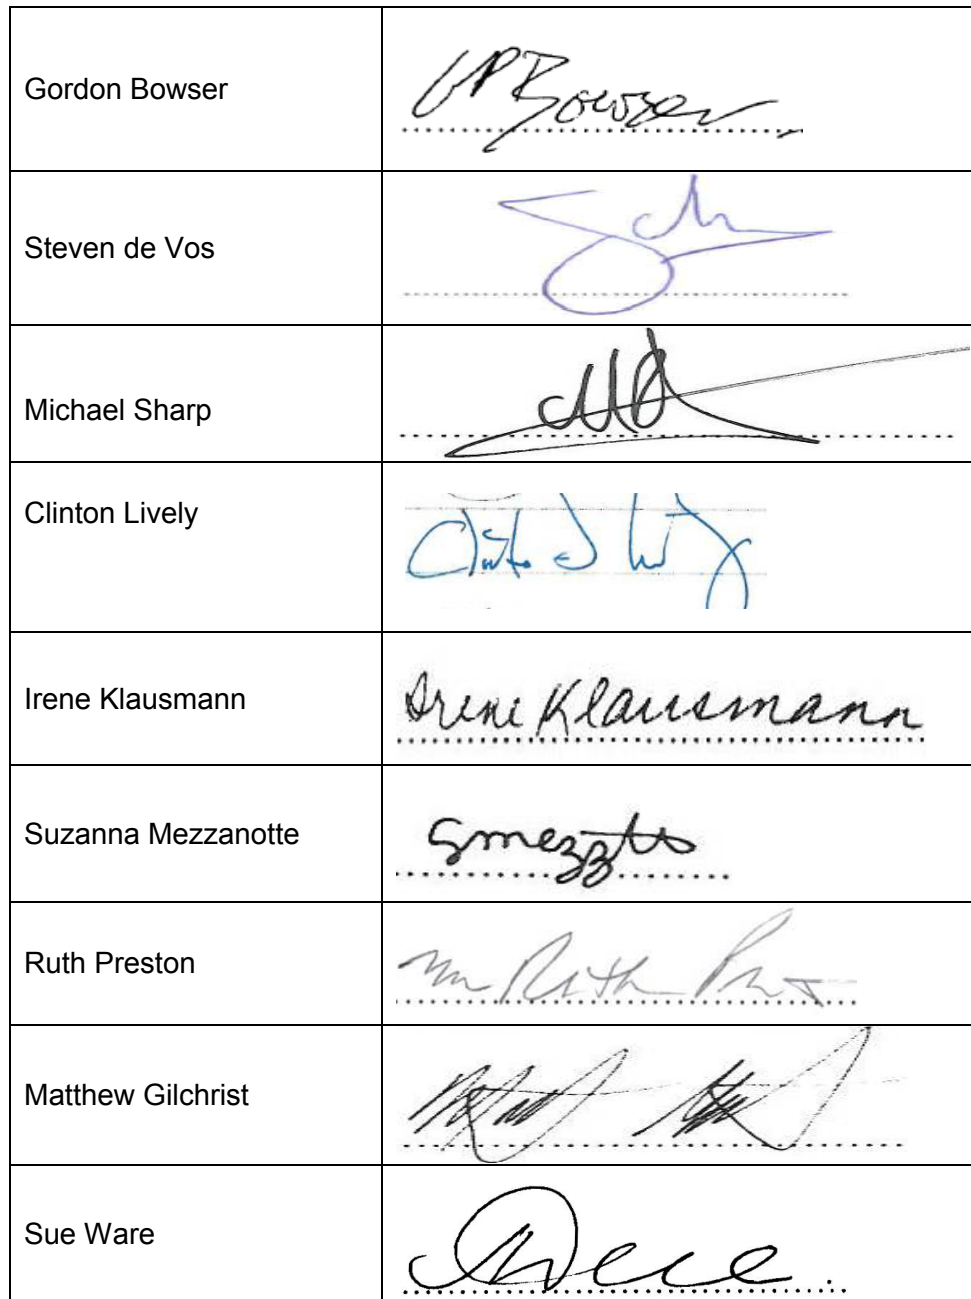 Gordon Bowser
GPBowser
Steven de Vos
Michael Sharp
Clinton Lively
Irene Klausmann
Irene Klausmann
Suzanna Mezzanotte
Smezztto
Ruth Preston
Ruth
Matthew Gilchrist
Sue Ware